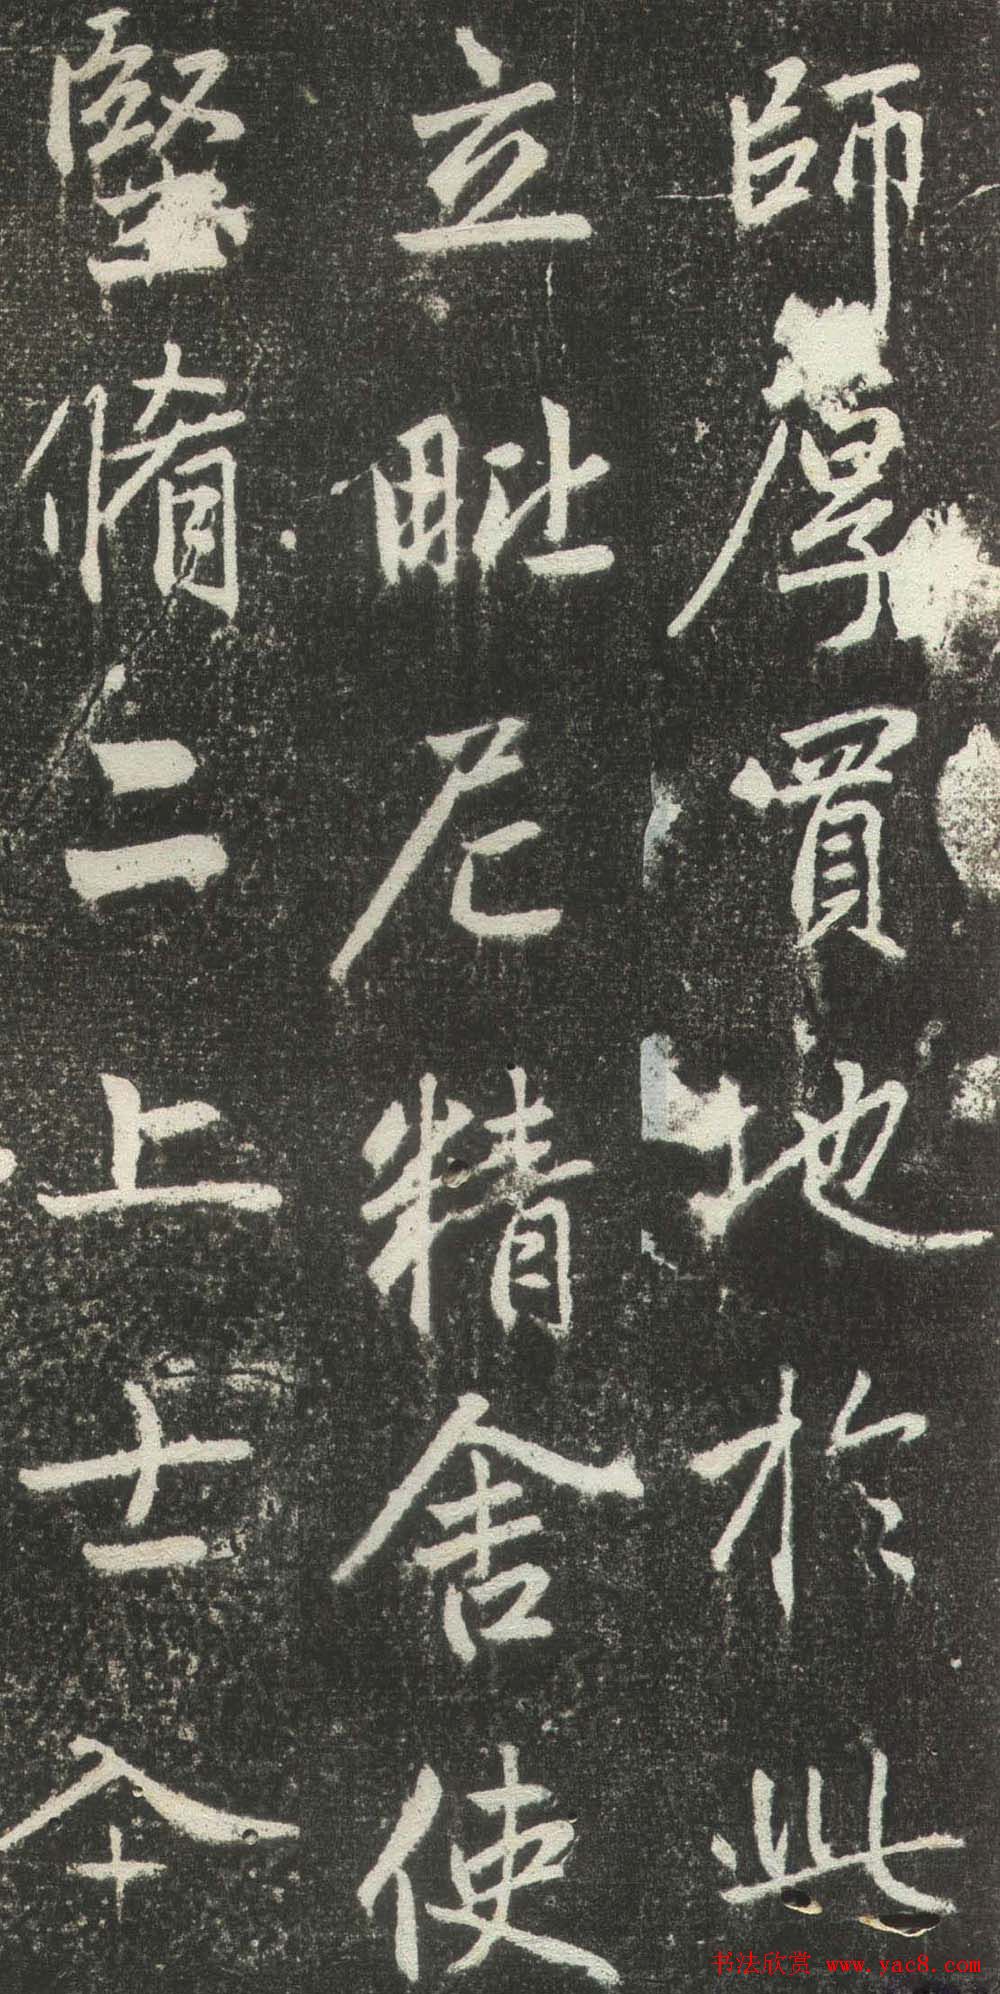 師厚買地於此
立毗尼精舍使
堅脩二上士入
十
书法欣赏 www.yac8.com